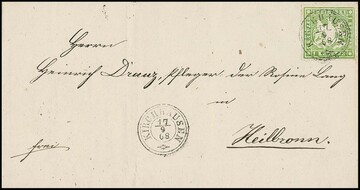 Herrn
Heinrich Drauz, Pfleger der Rosine Lang
in
Heilbronn.
frei
KIRCHHAUSEN
17
9
68